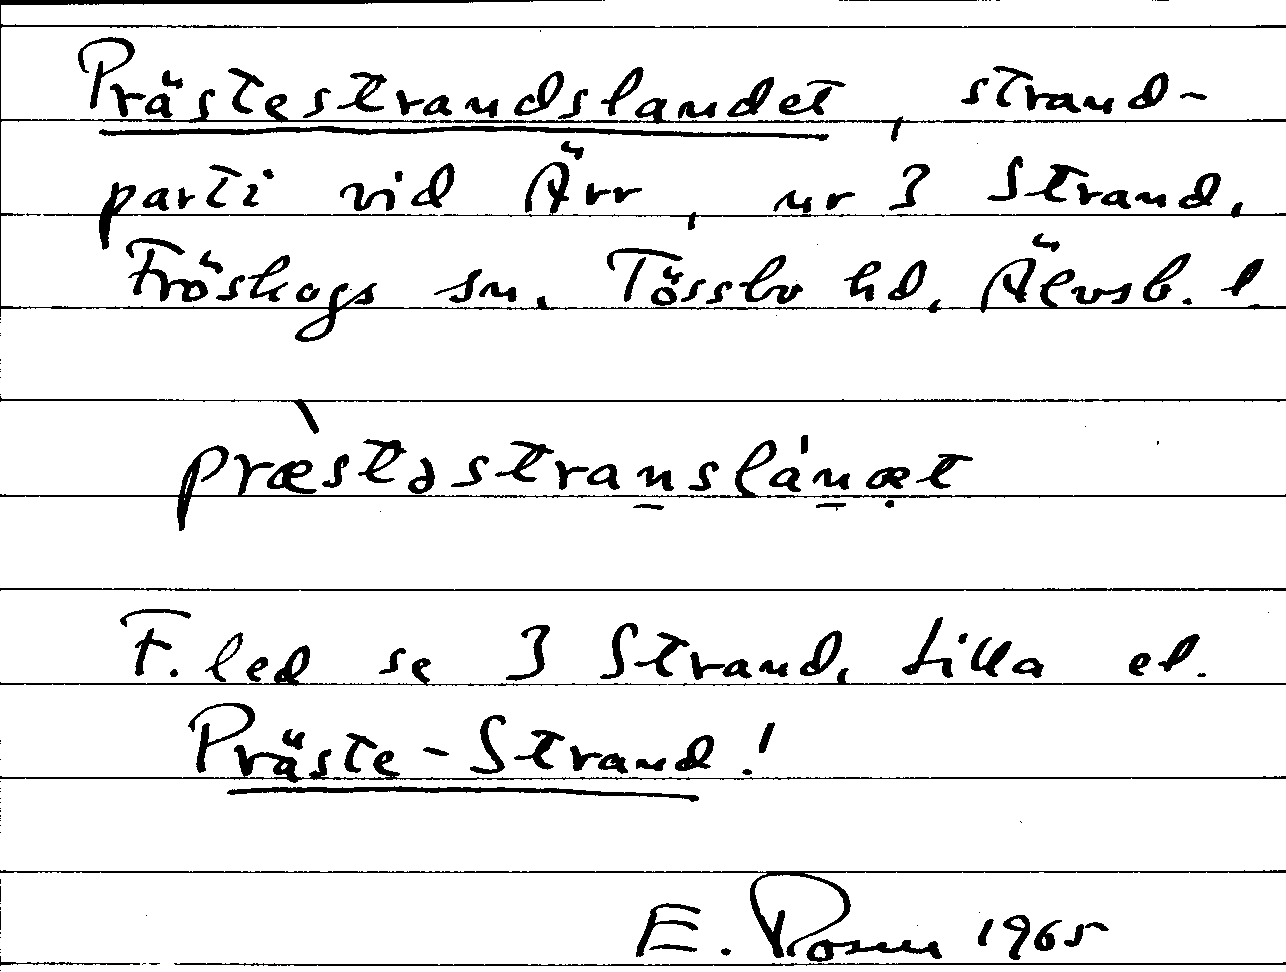 Prästestrandslandet, strand-
parti vid Ärr, nr 3 Strand,
Fröskogs sn. Tössbo hd, Älvsb. l.
præ̀stəstranslánæt
F. led se 3 Strand, Lilla el.
Präste-Strand!
E. Rosen 1965